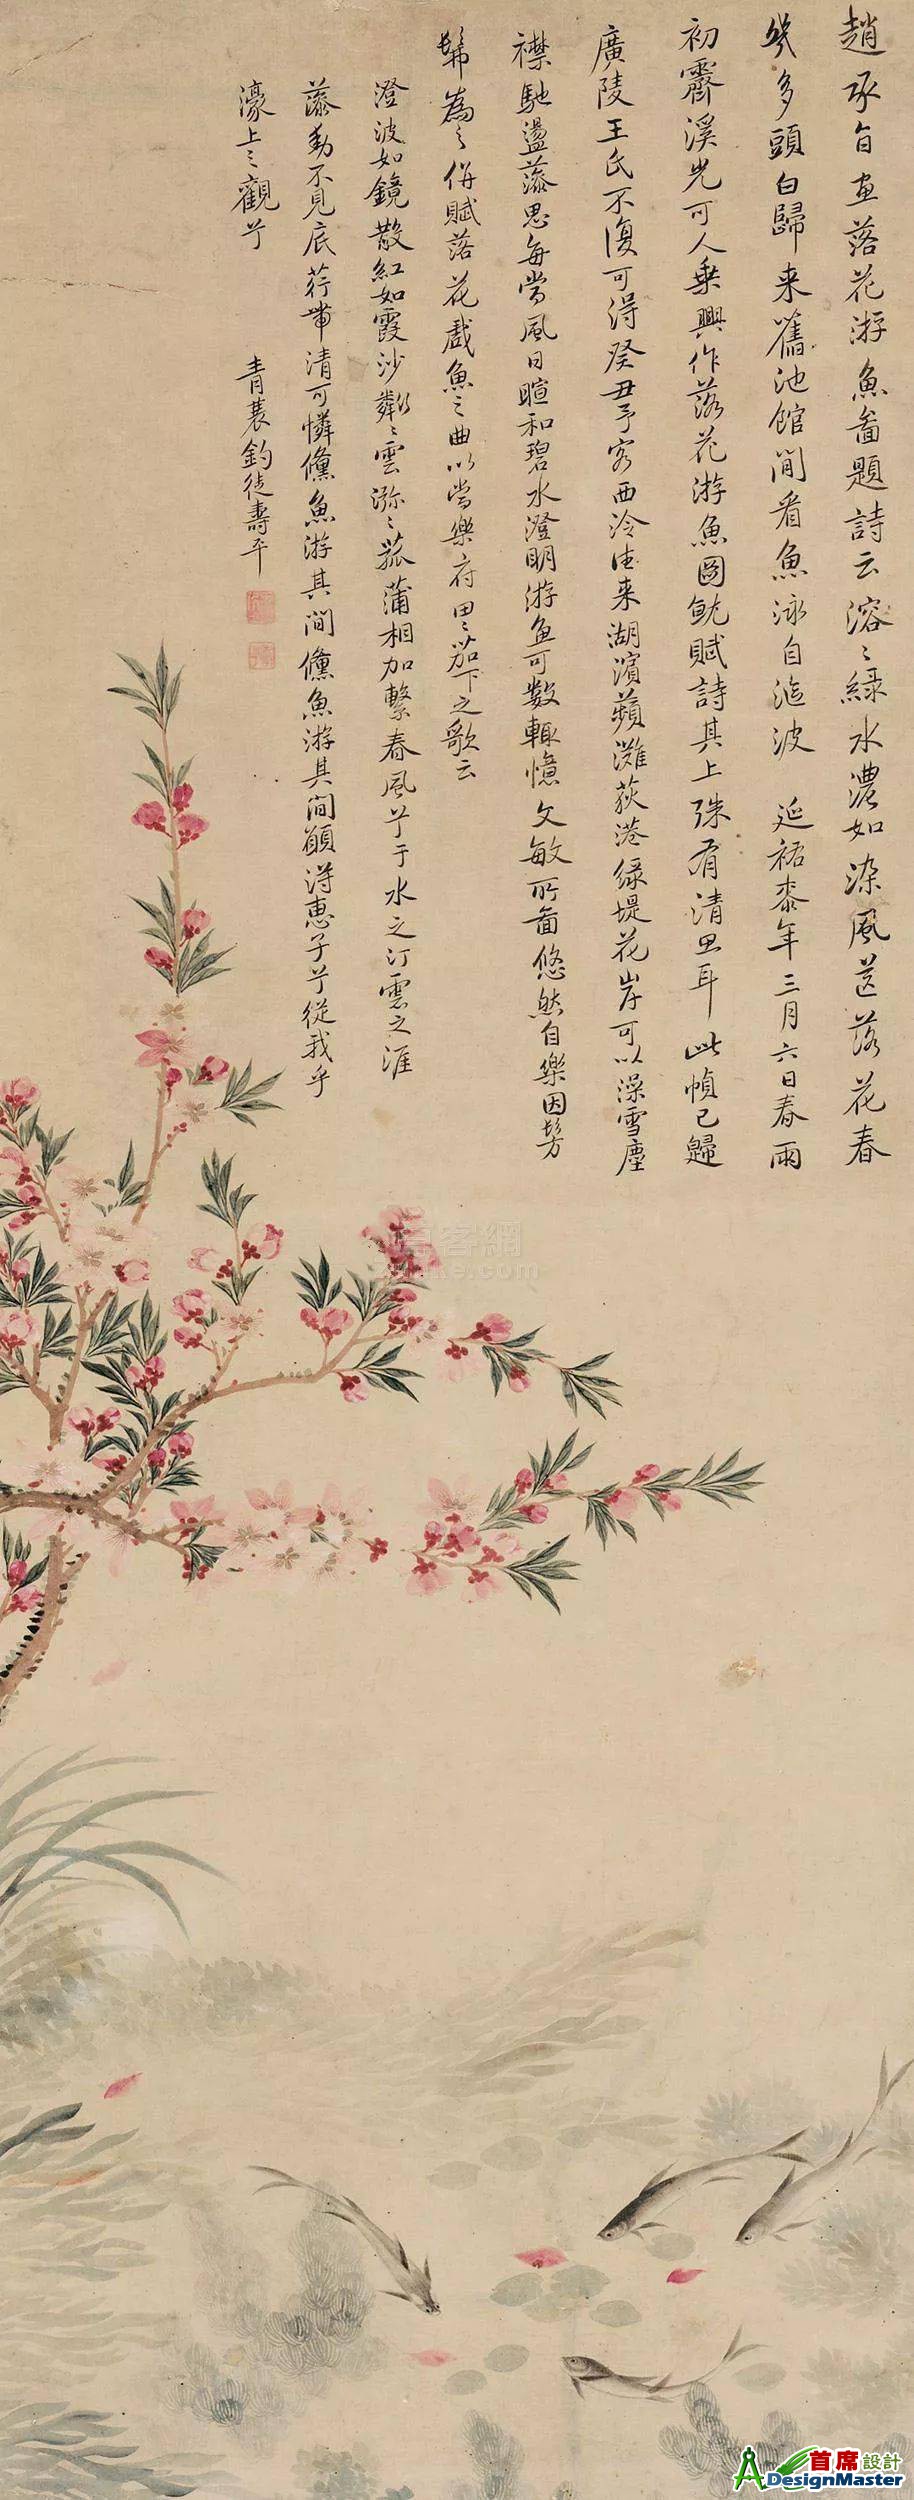 趙承旨畫落花游魚啚題詩云溶〻綠水濃如染風送落花春
幾多頭白歸来舊池館閒看魚泳自迤波 延祐柒年三月六日春雨
初霽溪光可人乗興作落花游魚圖就賦詩其上殊有清思耳此幀已歸
廣陵王氏不復可得癸丑予客西泠往来湖濱蘋灘荻港綠堤花岸可以澡雪塵
襟馳盪藻思每當風日暄和碧水澄明游魚可數輒憶文敏所啚悠然自樂因髣
髴為之併賦落花戲魚之曲以當樂府田田茄下之歌云
澄波如鏡散紅如霞沙粼〻以雲瀰〻菰蒲相加繫春風兮于水之汀雲之涯
藻動不見底荇帶清可憐儵魚游其間儵魚游其間願得惠子兮從我乎
濠上之觀兮
青蓑釣徒壽平
首席設計
DesignMaster